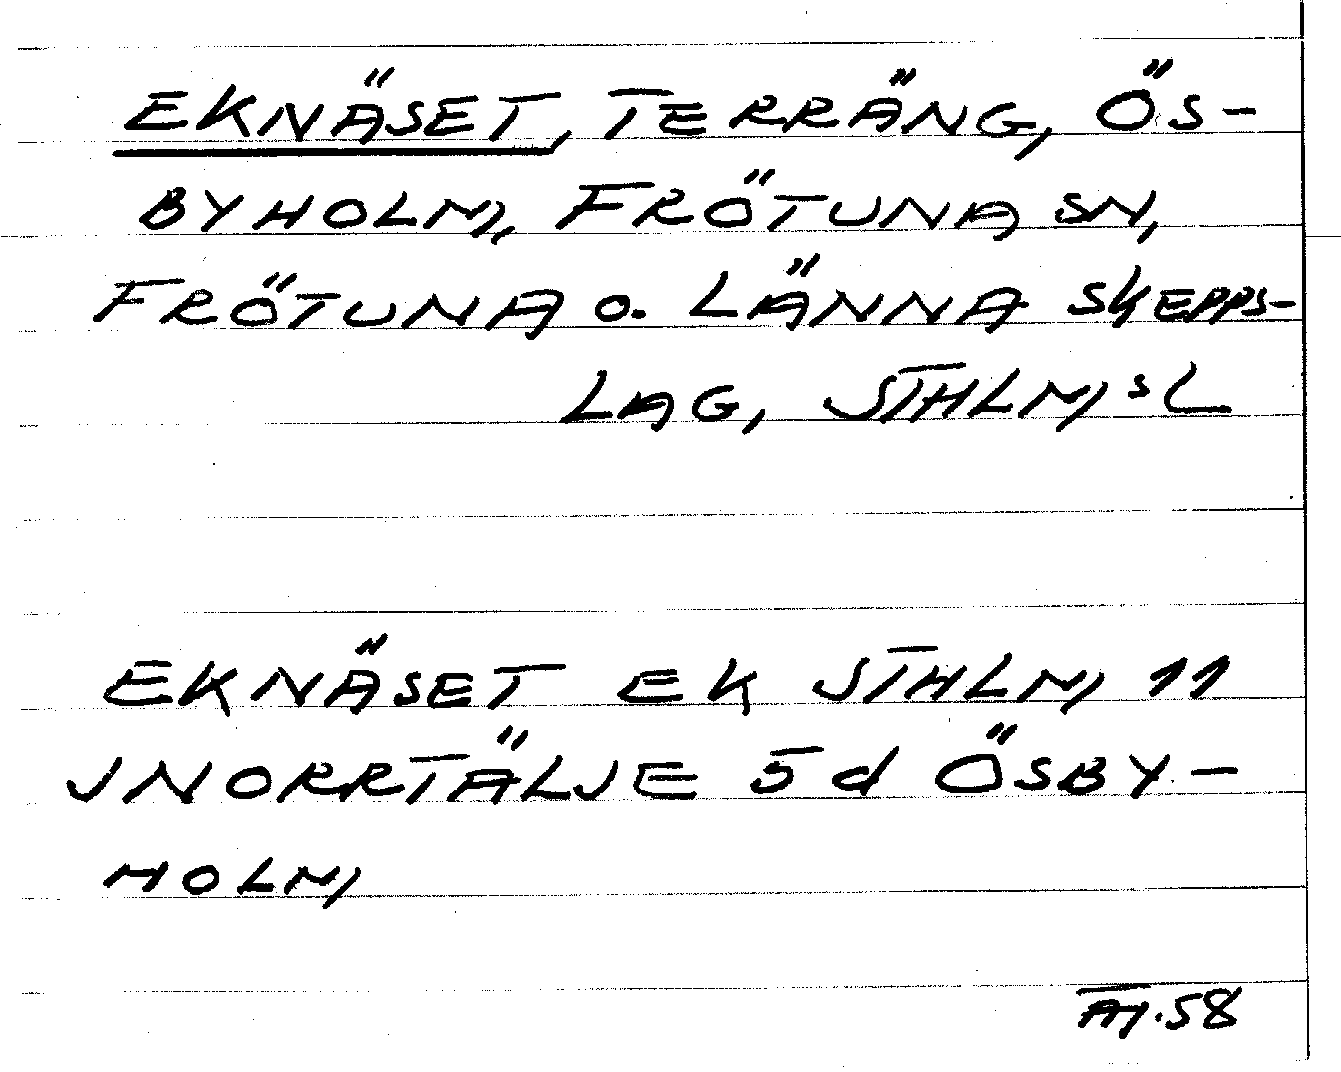 EKNÄSET, TERRÄNG, ÖS-
BYHOLM, FRÖTUNA SN,
FRÖTUNA o. LÄNNA SKEPPS-
LAG, STHLM sL
EKNÄSET EK STHLM 11
JNORRTÄLJE 5d ÖSBY-
HOLM